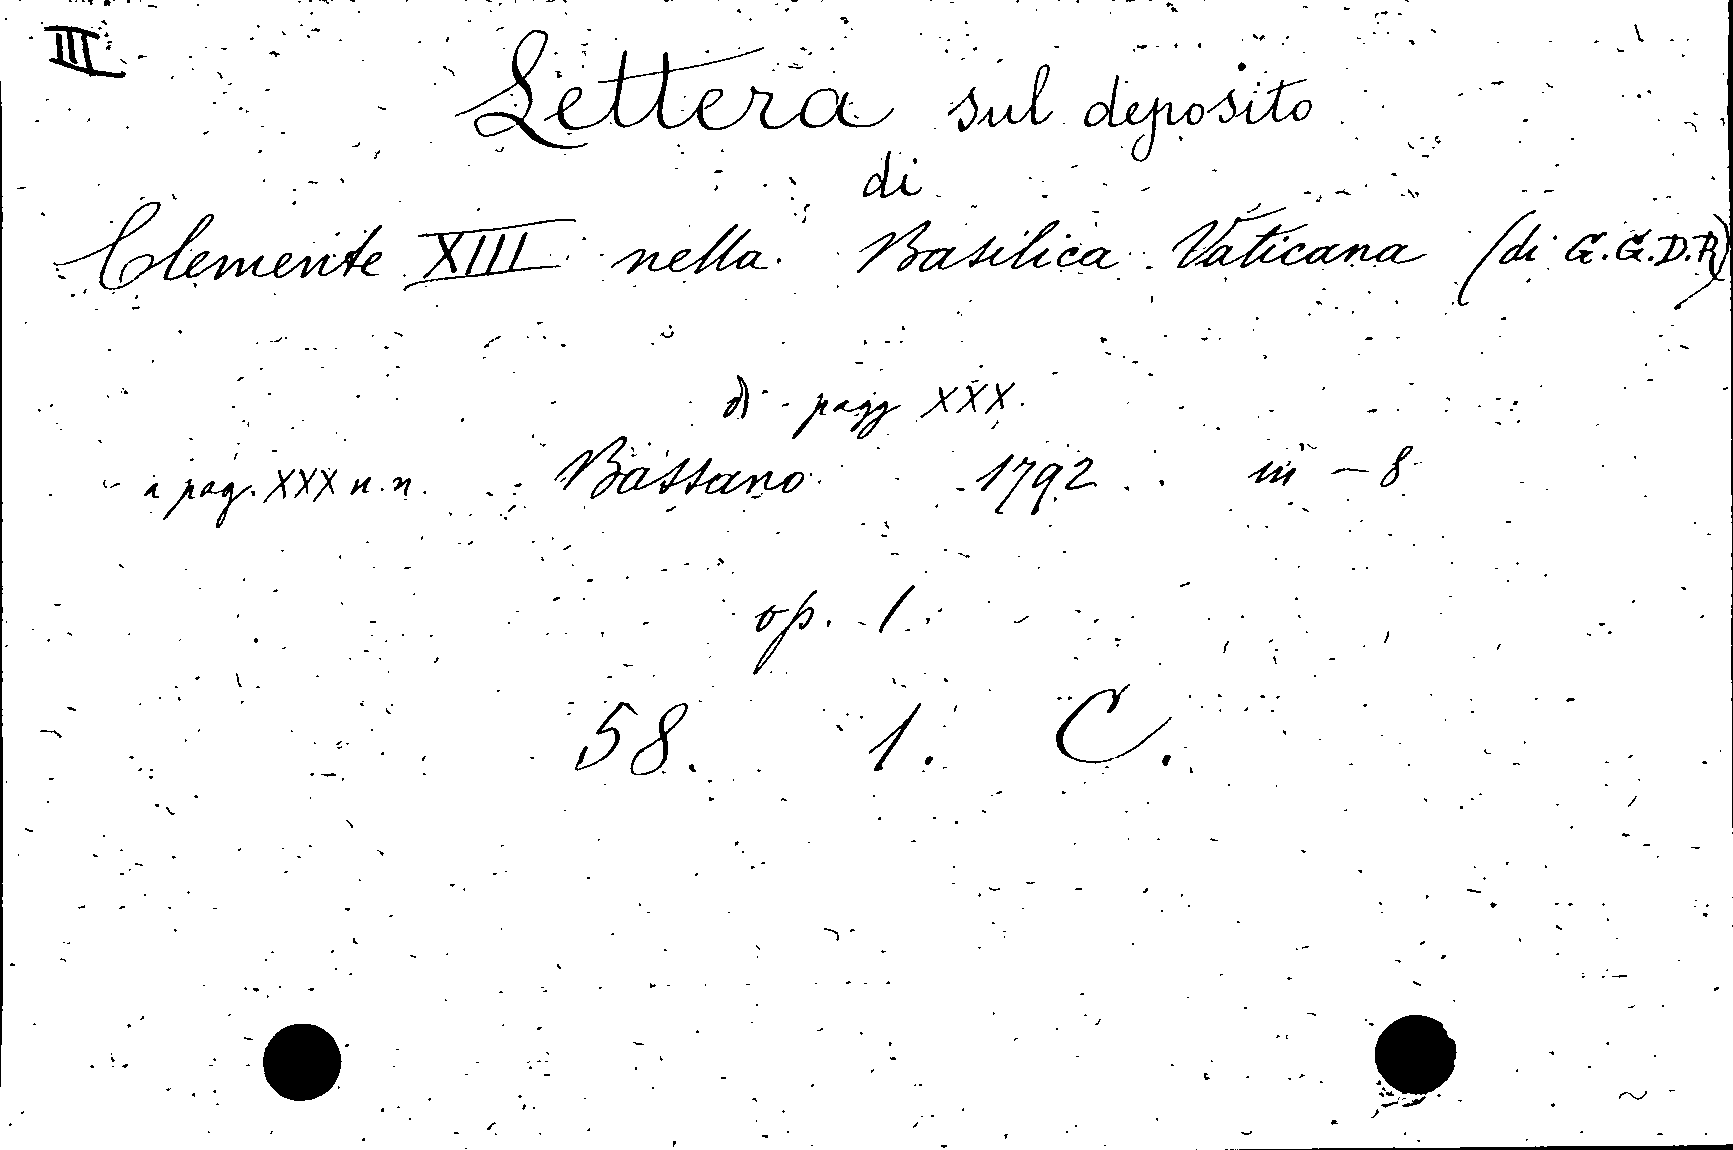 III
Lettera sul deposito
di
Clemente XIII nella Basilica Vaticana (di G.G.D.R)
di pagg XXX.
a pag. XXX n.n. Bassano 1792 in-8
op. 1.
58. 1. C.